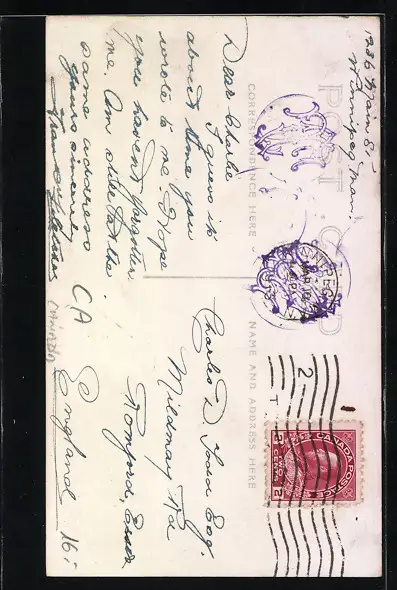 1286 Main St
Winnipeg, Man.
POST CARD
CORRESPONDENCE HERE
NAME AND ADDRESS HERE
Dear Charlie
I guess its
about time you
wrote to me. Hope
you havent forgotten
me. Am still at the
same address
Yours sincerely
Charles D. Good Esq.
Mildmay Rd
Romford, Essex
England
CA
16,-
WINNIPEG
2
CANADA POSTAGE
2 TWO CENTS 2